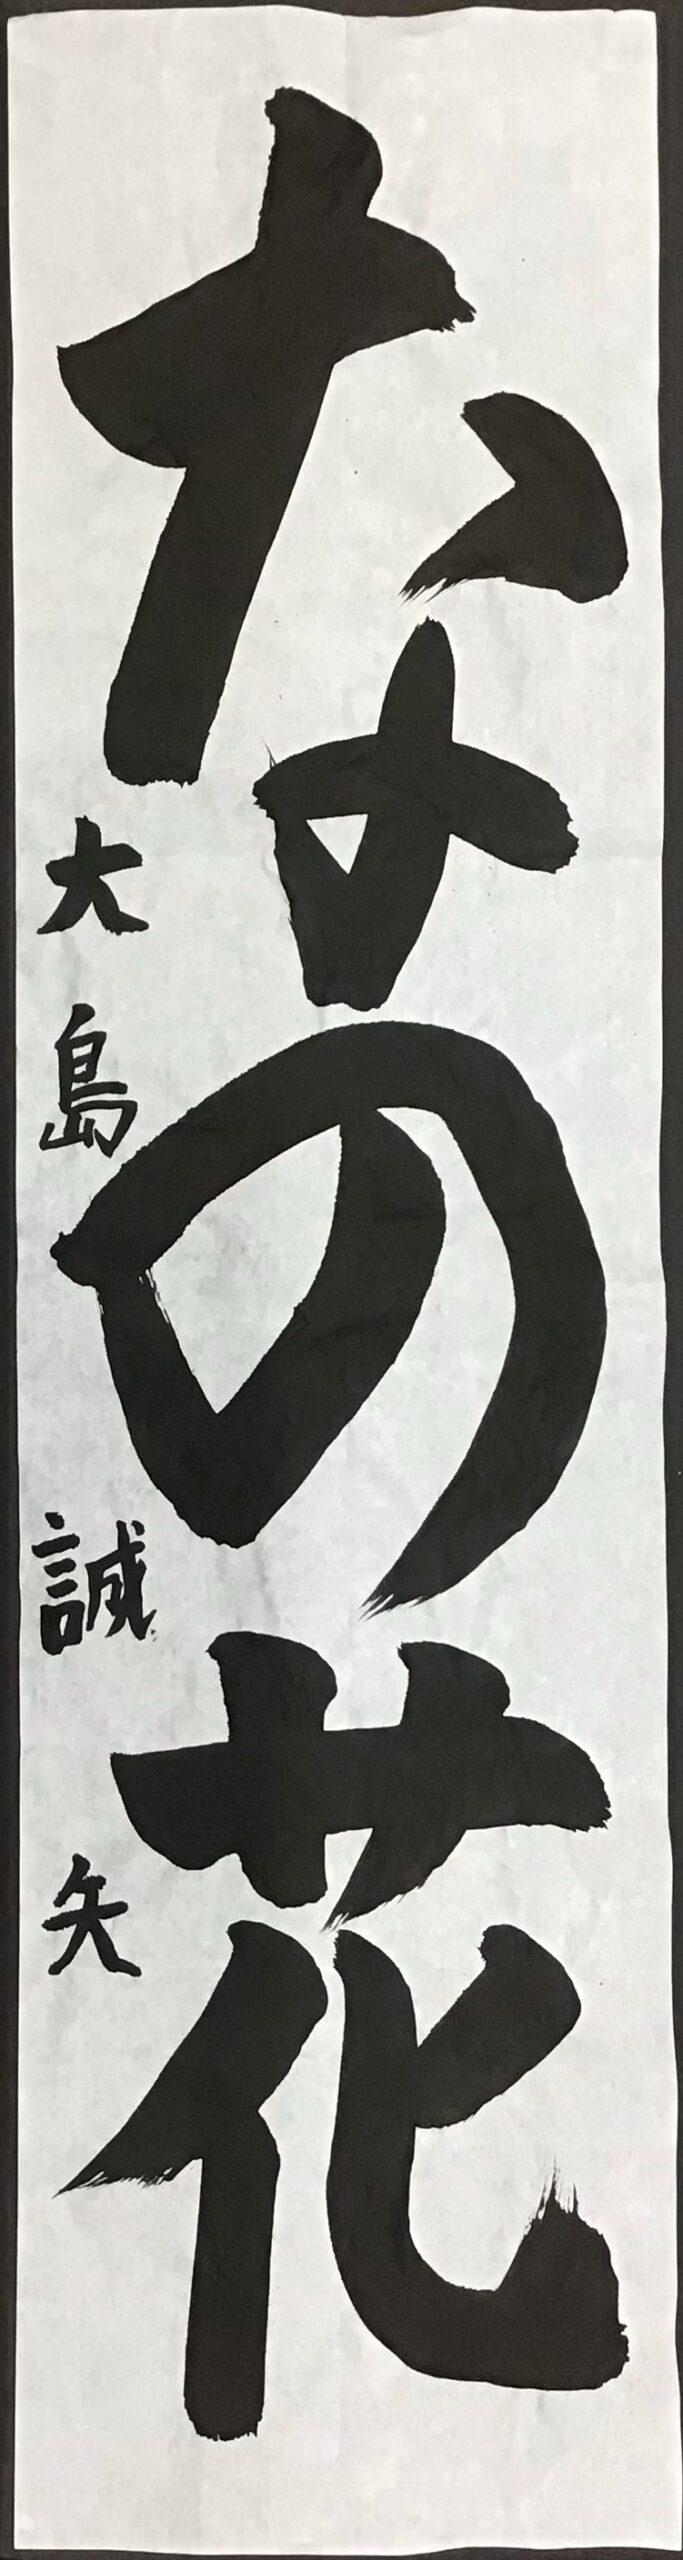 なの花
大島誠矢